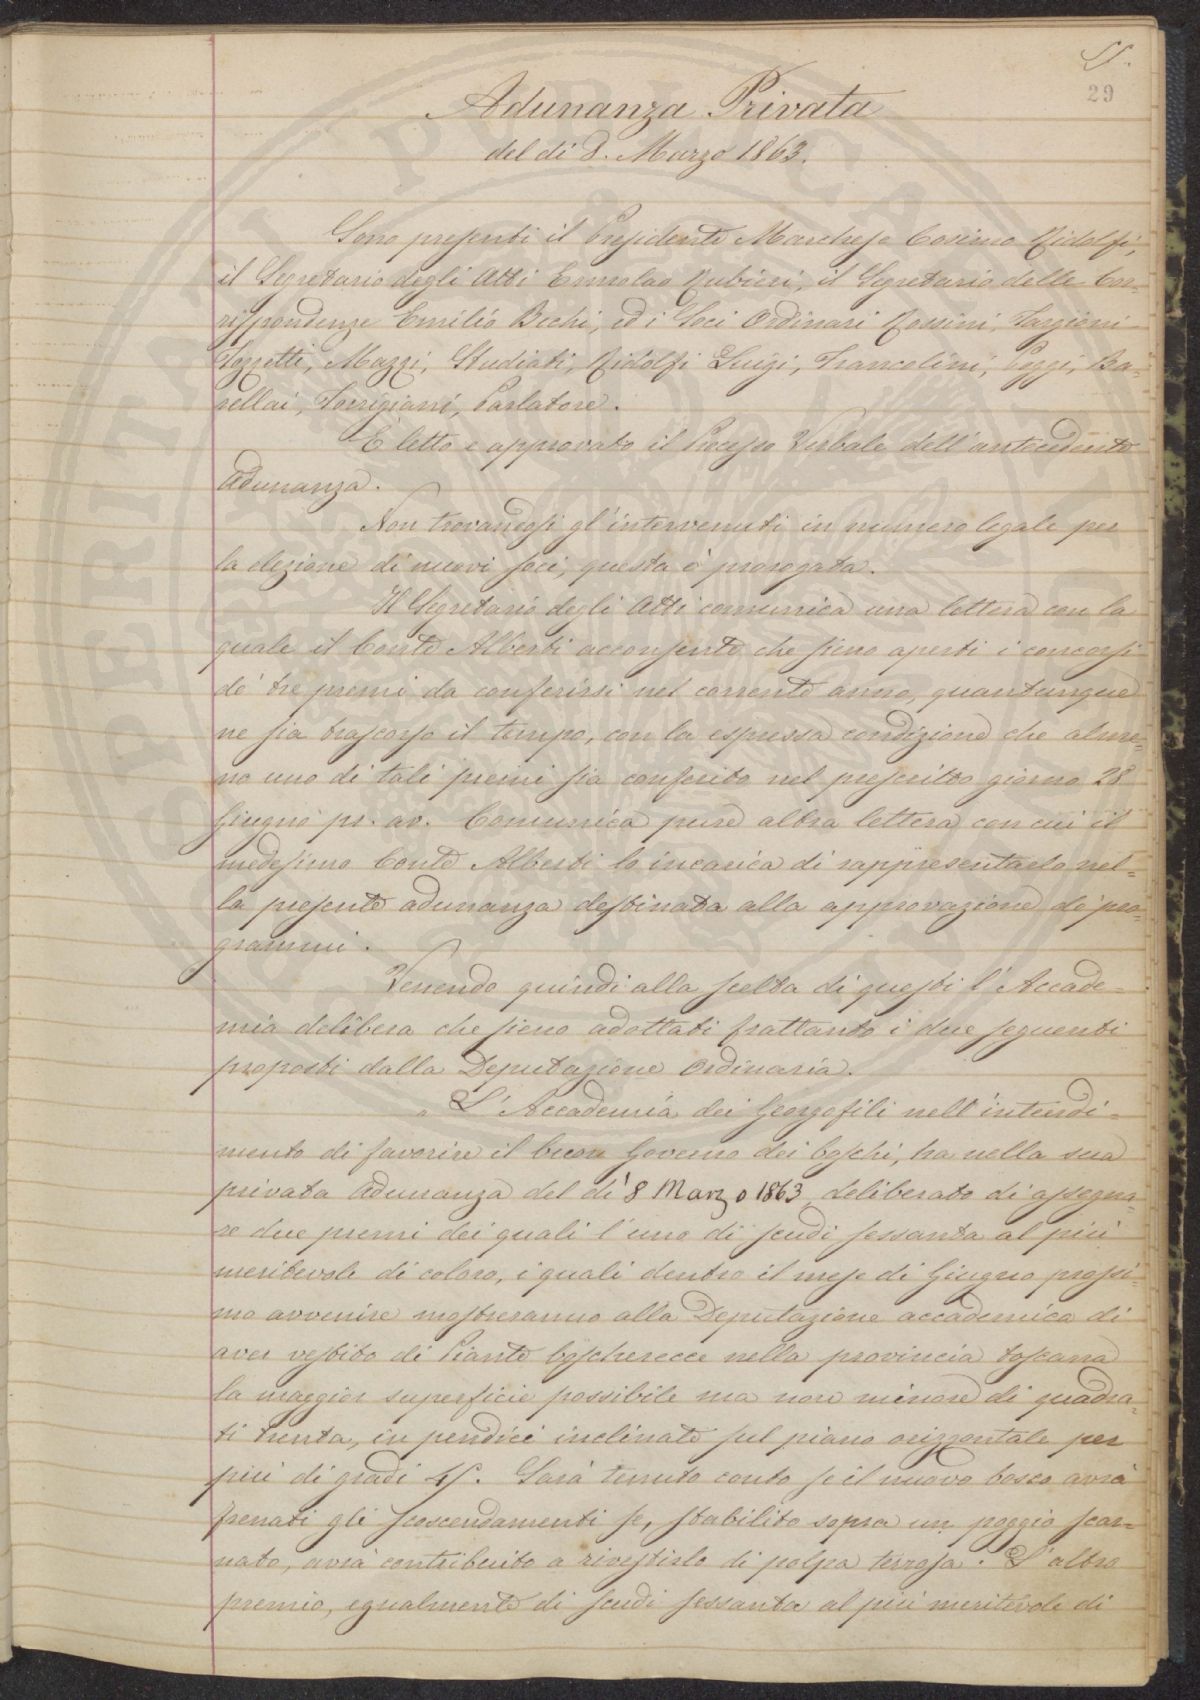 55.
29
Adunanza Privata
del dì 8. Marzo 1863.
Sono presenti il Presidente Marchese Cosimo Ridolfi,
il Segretario degli Atti Ermolao Rubieri, il Segretario delle Cor=
rispondenze Emilio Bechi, ed i Soci Ordinari Rossini, Targioni
Tozzetti, Mazzi, Studiati, Ridolfi Luigi, Francolini, Poggi, Ba=
rellai, Torrigiani, Parlatore.
È letto e approvato il Processo Verbale dell'antecedente
Adunanza.
Non trovandosi gl'intervenuti in numero legale per
la elezione di nuovi soci, questa è prorogata.
Il Segretario degli Atti comunica una lettera con la
quale il Conte Alberti acconsente che sieno aperti i concorsi
de' tre premi da conferirsi nel corrente anno, quantunque
ne sia trascorso il tempo, con la espressa condizione che alme=
no uno di tali premi sia conferito nel prescritto giorno 28
Giugno pr. av. Comunica pure altra lettera con cui il
medesimo Conte Alberti lo incarica di rappresentarlo nel=
la presente adunanza destinata alla approvazione de' pro=
grammi.
Venendo quindi alla scelta di questi l'Accade=
mia delibera che sieno adottati frattanto i due seguenti
proposti dalla Deputazione Ordinaria.
" L'Accademia dei Georgofili nell'intendi=
mento di favorire il buon Governo dei boschi, ha nella sua
privata Adunanza del dì 8 Marzo 1863, deliberato di assegna=
re due premi dei quali l'uno di scudi sessanta al più
meritevole di coloro, i quali dentro il mese di Giugno prossi=
mo avvenire mostreranno alla Deputazione accademica di
aver vestito di Piante boscherecce nella provincia toscana
la maggior superficie possibile ma non minore di quadra=
ti trenta, in pendici inclinate sul piano orizzontale per
più di gradi 45. Sarà tenuto conto se il nuovo bosco avrà
frenati gli scoscendamenti se, stabilito sopra un poggio scar=
nato, avrà contribuito a rivestirlo di polpa terrosa. L'altro
premio, egualmente di scudi sessanta al più meritevole di